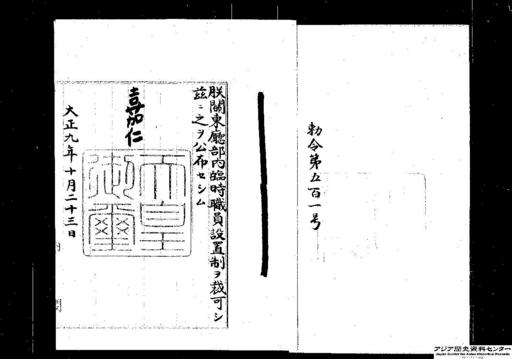 勅令第五百一号
朕關東廳部内臨時職員設置制ヲ裁可シ
茲ニ之ヲ公布セシム
嘉仁
天皇御璽
大正九年十月二十三日
アジア歴史資料センター
Japan Center for Asian Historical Records